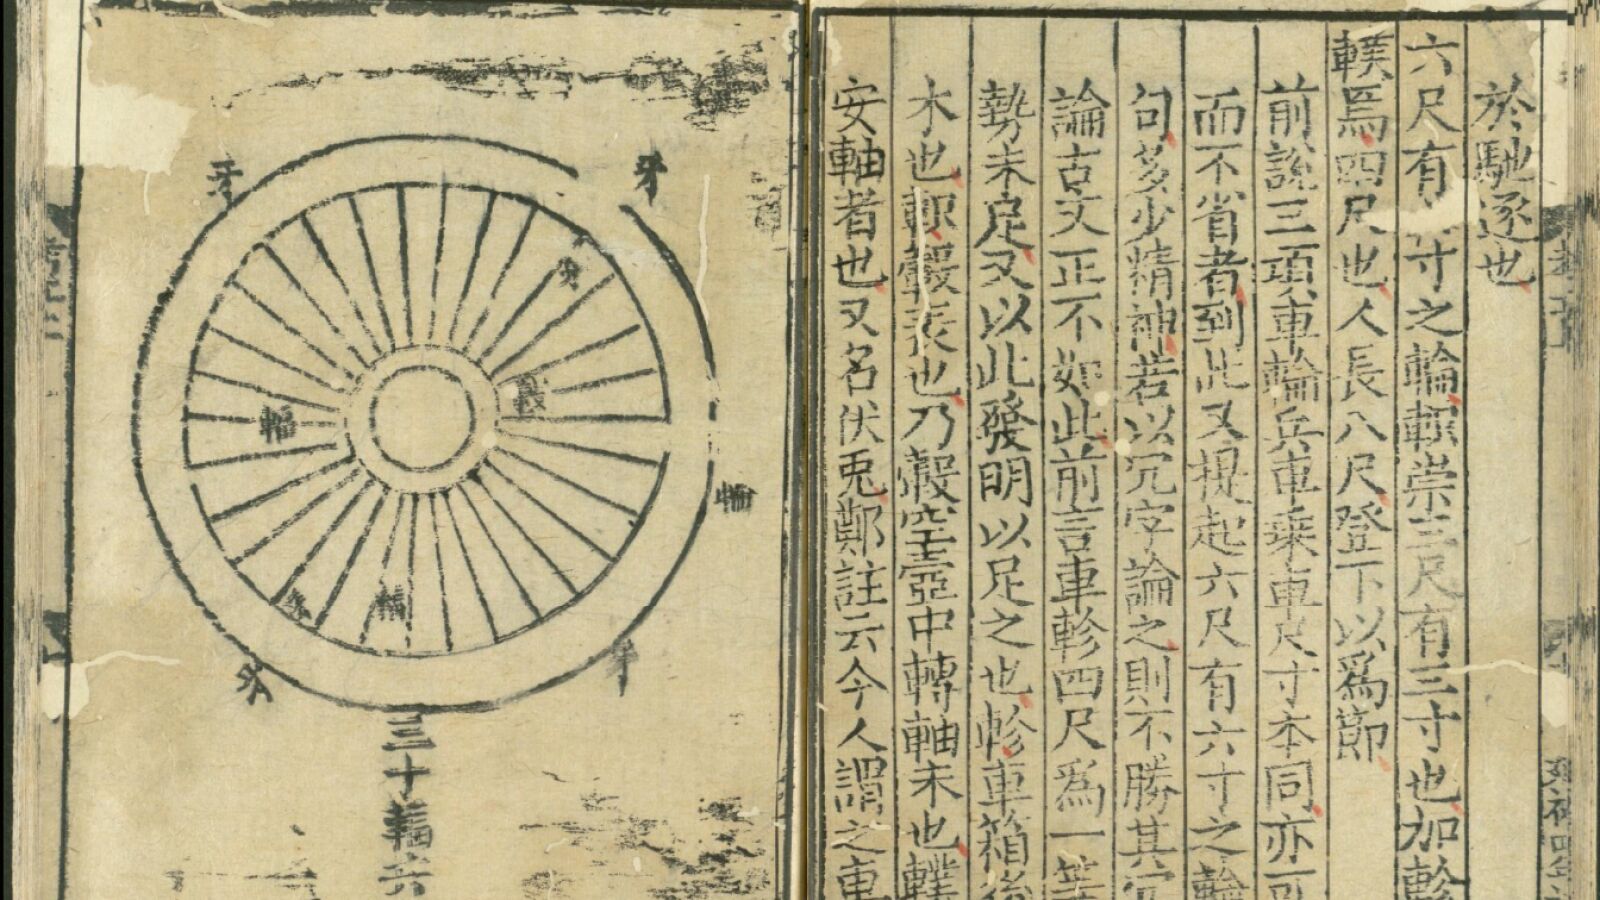 於馳逐也
六尺有寸之輪軹崇三尺有三寸也加軫
轐焉四尺也人長八尺登下以爲節
前說三項車輪兵車乘車尺寸本同亦
而不省者到此又提起六尺有六寸之輪
句多少精神若以冗字論之則不勝其冗
論古文正不如此前言車軫四尺爲一等
勢未足又以此發明以足之也軫車箱後
木也軹轂末也乃轂空壺中轉軸末也轐
安軸者也又名伏兎鄭註云今人謂之車
牙
牙
輻
轂
輪
輻
牙
牙
三十輻六